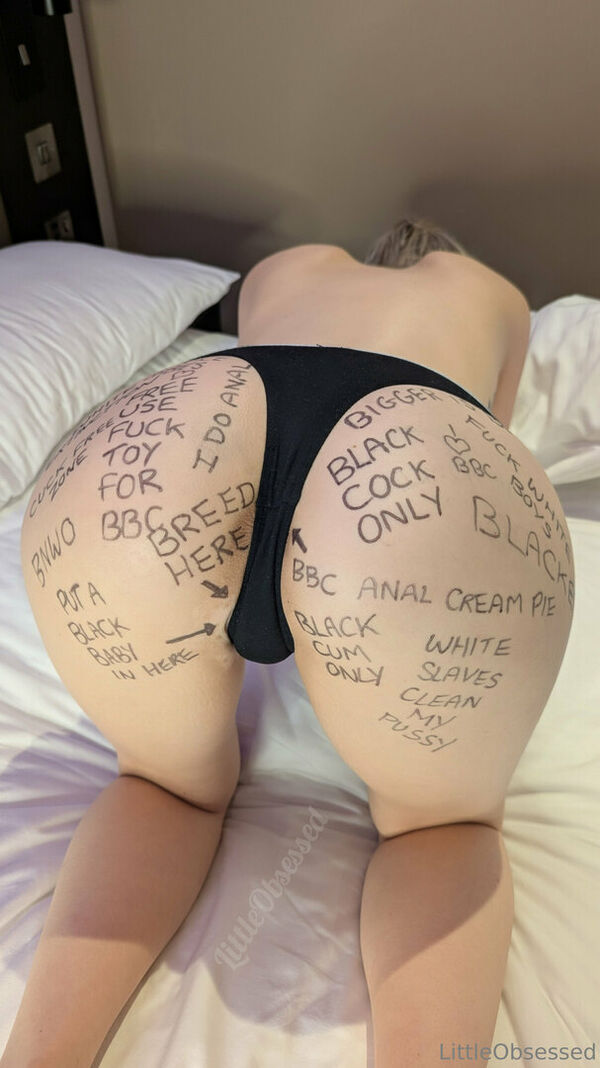 FREE
USE
FUCK
TOY
FOR
BBC
I DO ANAL
CUCK FREE
ZONE
BNWO
BREED
HERE
PUT A
BLACK
BABY
IN HERE
BIGGER
BLACK
COCK
ONLY
I ♡
BBC
FUCK WHITE
BOYS
BLACKE
BBC ANAL CREAM PIE
BLACK
CUM
ONLY
WHITE
SLAVES
CLEAN
MY
PUSSY
LittleObsessed
LittleObsessed